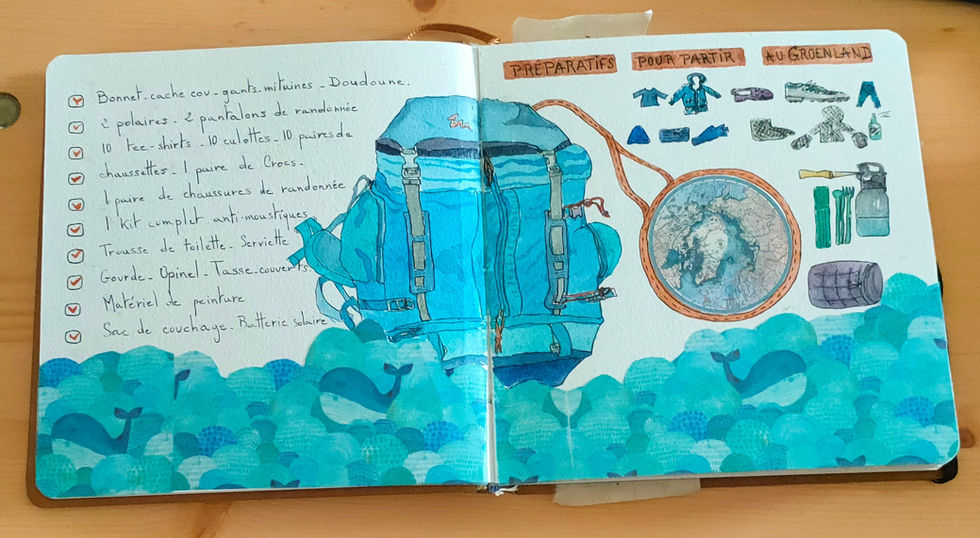 Bonnet-cache cou-gants-mitaines - Doudoune.
2 polaires - 2 pantalons de randonnée
10 Tee-shirts - 10 culottes - 10 paires de
chaussettes - 1 paire de Crocs.
1 paire de chaussures de randonnée
1 Kit complet anti-moustiques
Trousse de toilette - Serviette
Gourde - Opinel - Tasse-couverts
Matériel de peinture
Sac de couchage - Batterie solaire
PRÉPARATIFS POUR PARTIR AU GROENLAND